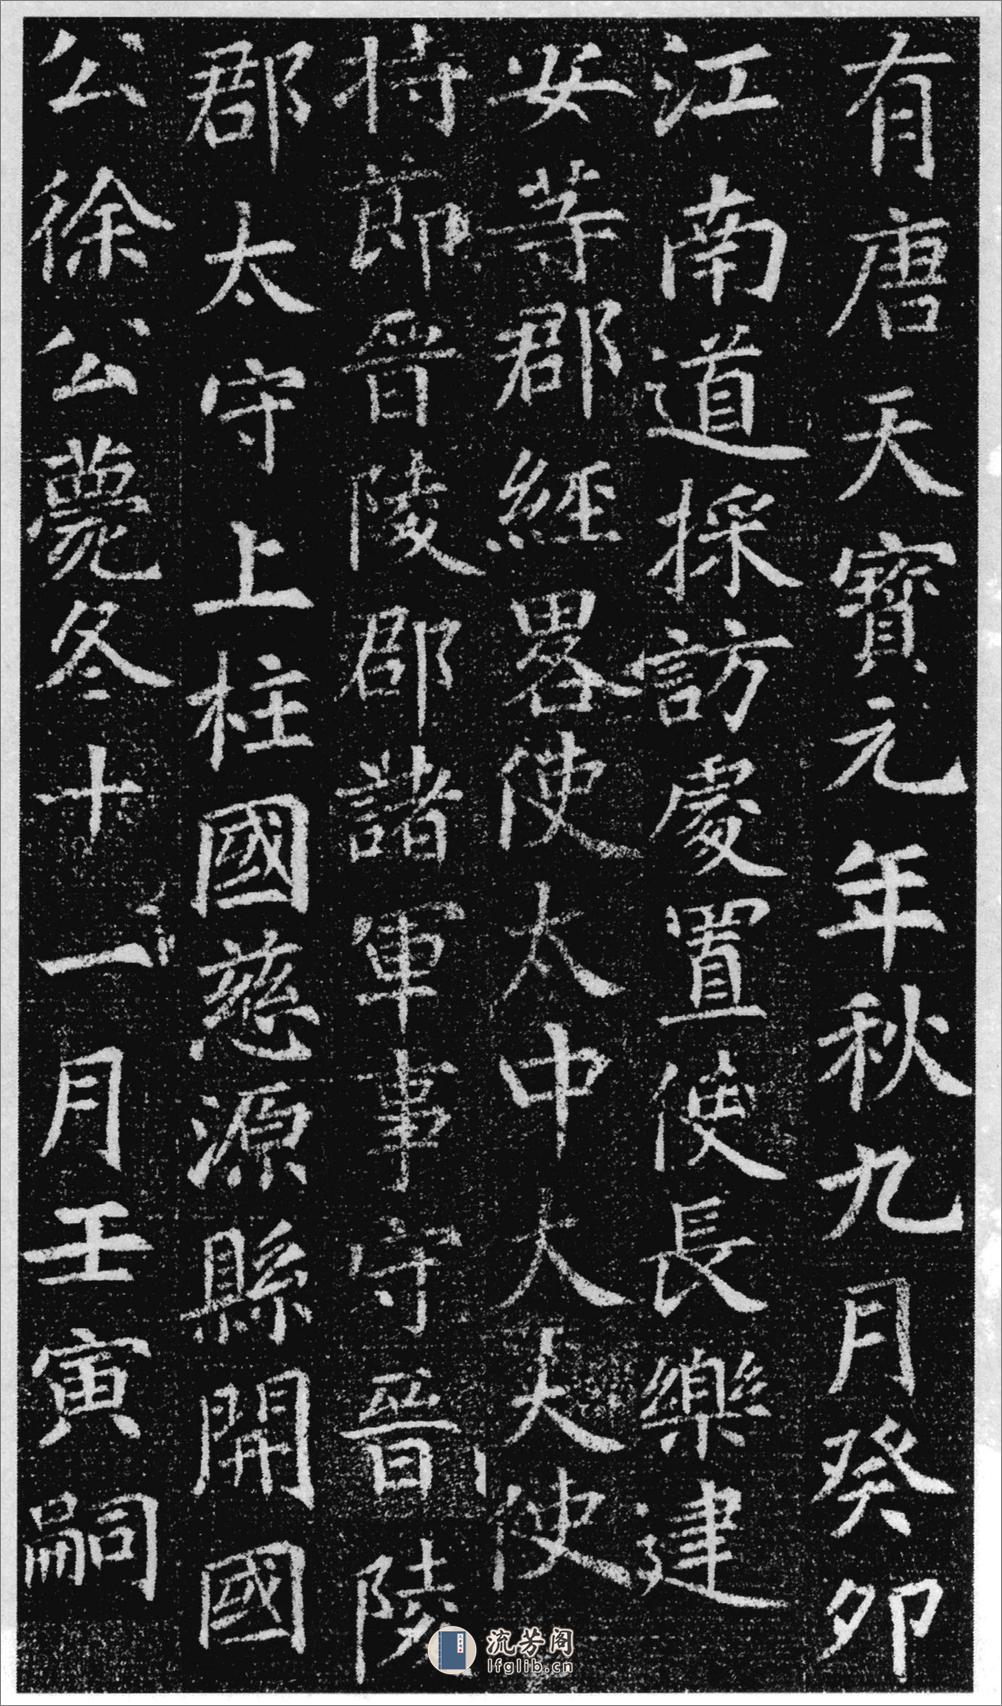 有唐天寶元年秋九月癸卯
江南道採訪處置使長樂建
安等郡經畧使太中大夫使
持節晉陵郡諸軍事守晉陵
郡太守上柱國慈源縣開國
公徐公薨冬十一月壬寅嗣
流芳阁
lfglib.cn